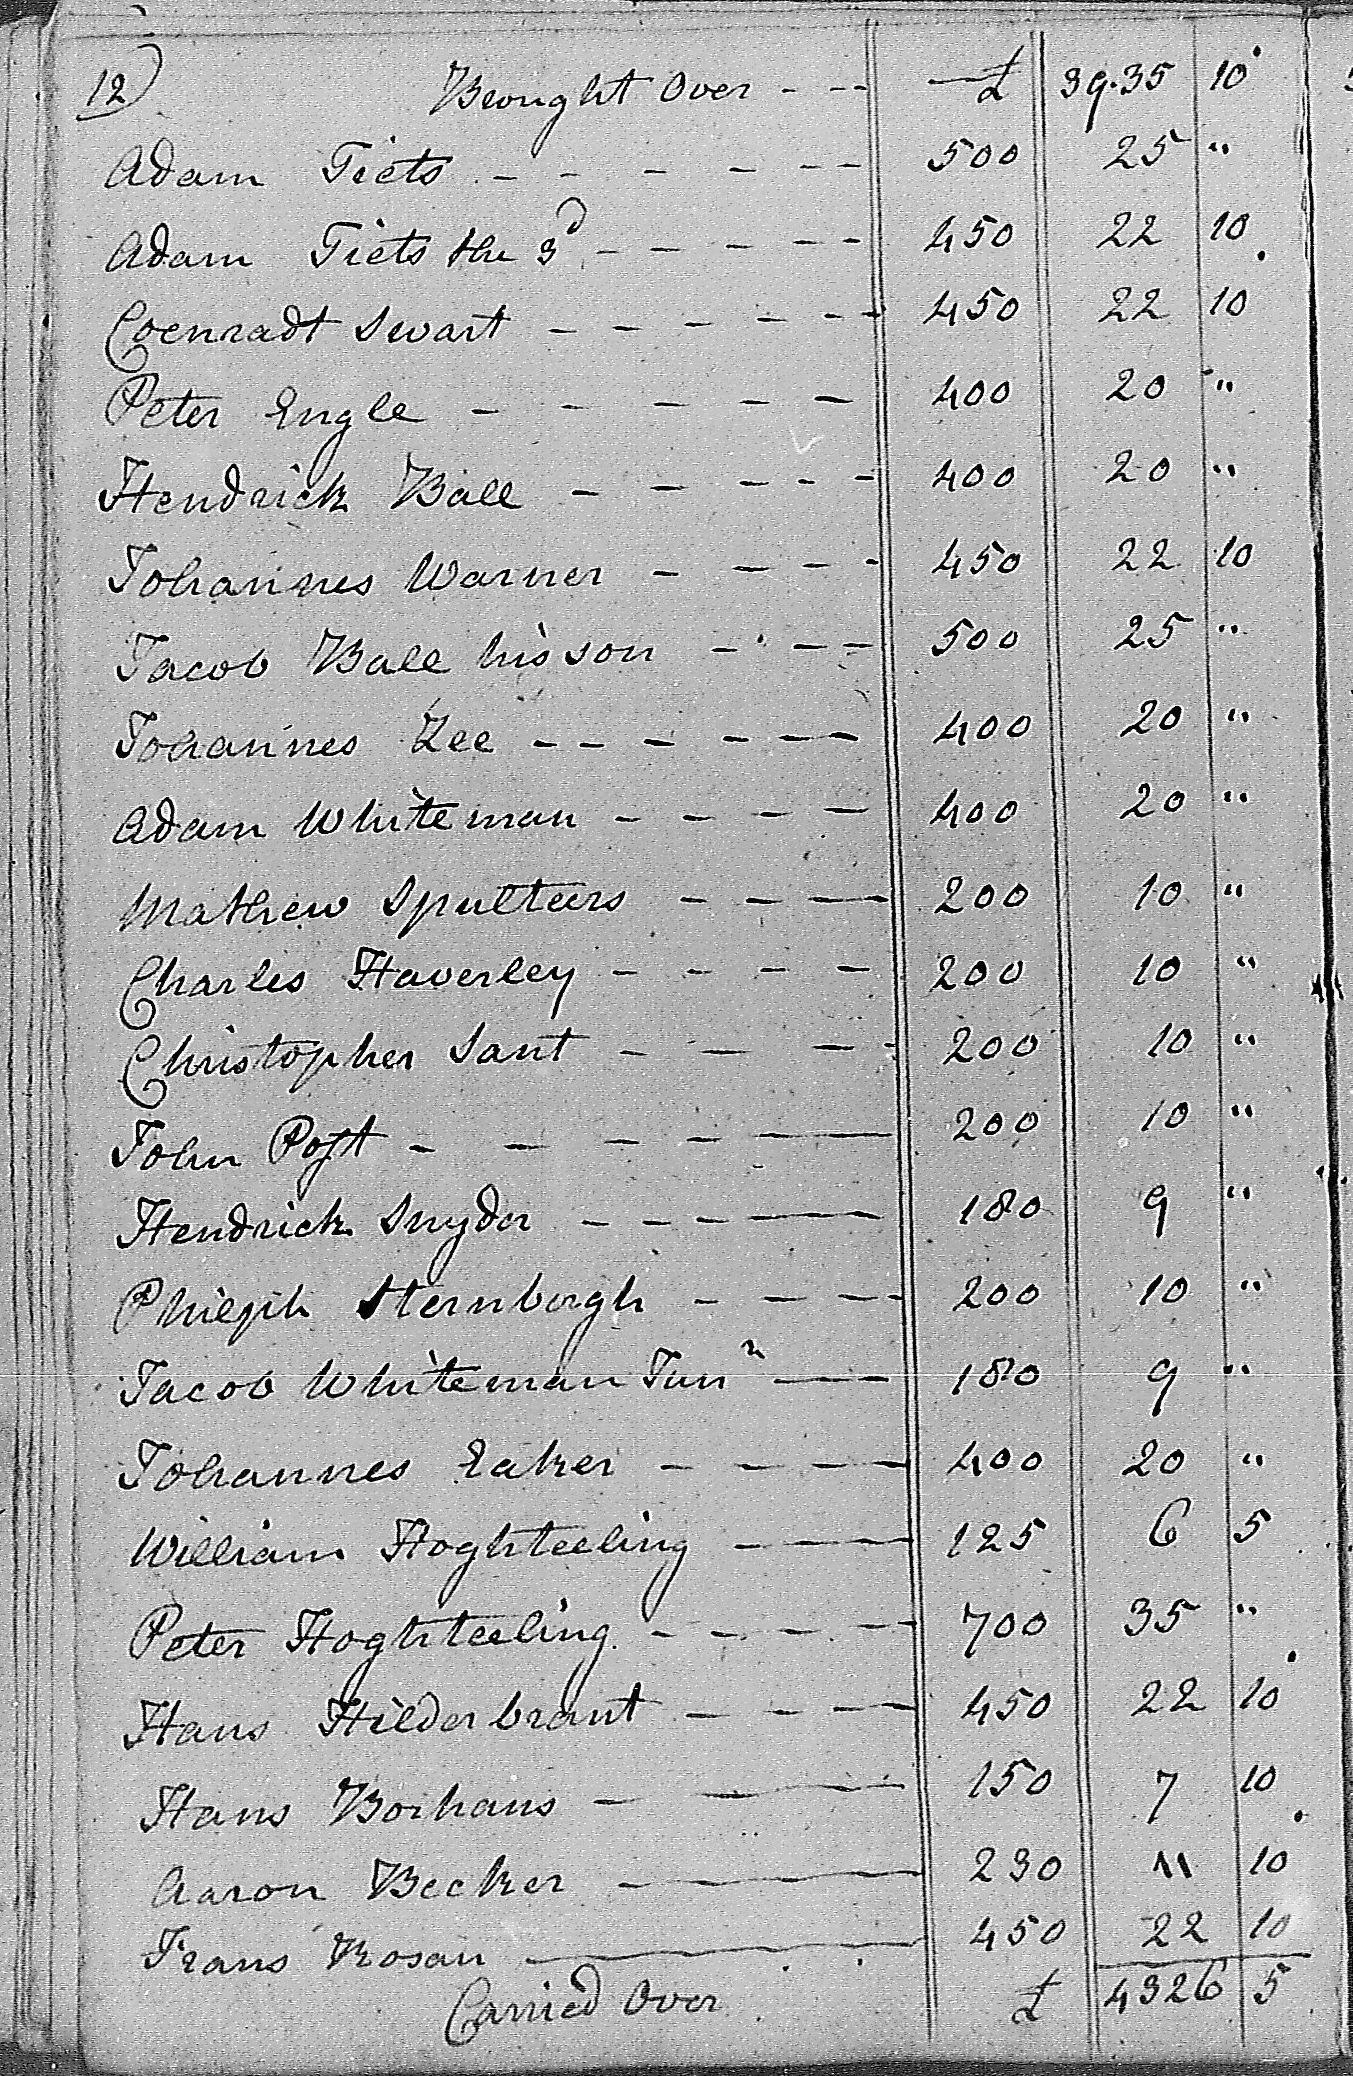 12) Brought Over - - - £ 39.35 10
Adam Tiets - - - - - 500 25 "
Adam Tiets the 3d - - - - 450 22 10
Coenradt Swart - - - - - 450 22 10
Peter Engle - - - - - 400 20 "
Hendrick Ball - - - - - 400 20 "
Johannes Warner - - - - 450 22 10
Jacob Ball his son - - - - 500 25 "
Johannes Zee - - - - - - 400 20 "
Adam Whiteman - - - - 400 20 "
Mathew Spulteers - - - - 200 10 "
Charles Haverley - - - - 200 10 "
Christopher Sant - - - - 200 10 "
John Post - - - - - 200 10 "
Hendrick Snyder - - - - 180 9 "
Philiph Sternbergh - - - - 200 10 "
Jacob Whiteman Junr - - 180 9 "
Johannes Eaker - - - - 400 20 "
William Hoghteeling - - 125 6 5
Peter Hoghteeling - - - - 700 35 "
Hans Hilderbrant - - - - 450 22 10
Hans Borhans - - - 150 7 10
Aaron Becker - - - 230 11 10
Frans Rosan - 450 22 10
Carried Over £ 4326 5